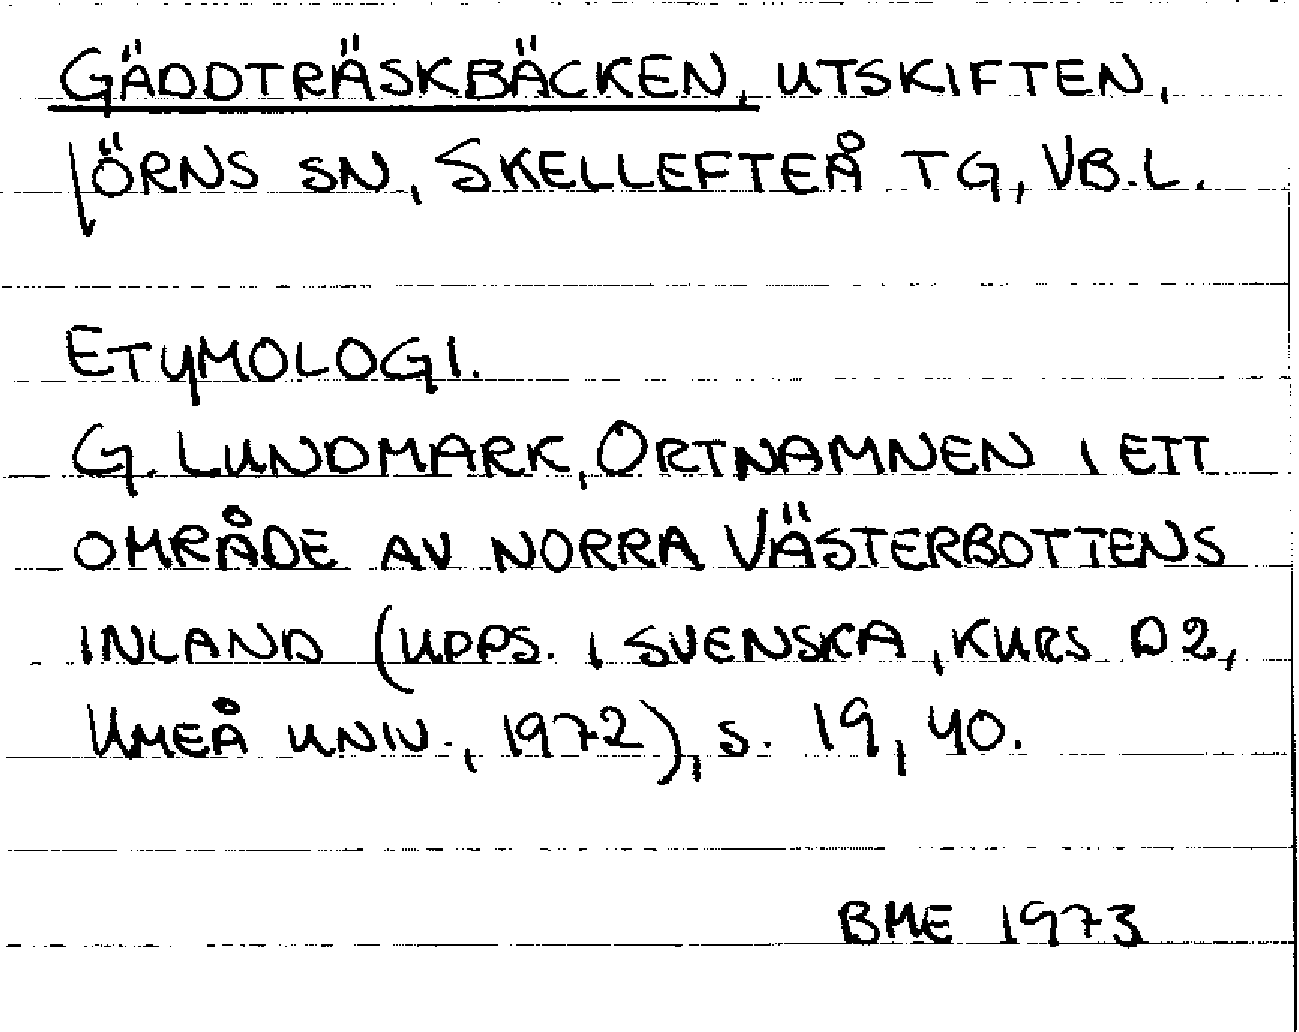 GÄDDTRÄSKBÄCKEN, UTSKIFTEN,
JÖRNS SN, SKELLEFTEÅ TG, VB.L.
ETYMOLOGI.
G. LUNDMARK, ORTNAMNEN I ETT
OMRÅDE AV NORRA VÄSTERBOTTENS
INLAND (UPPS. I SVENSKA, KURS D2,
UMEÅ UNIV., 1972), S. 19, 40.
BME 1973